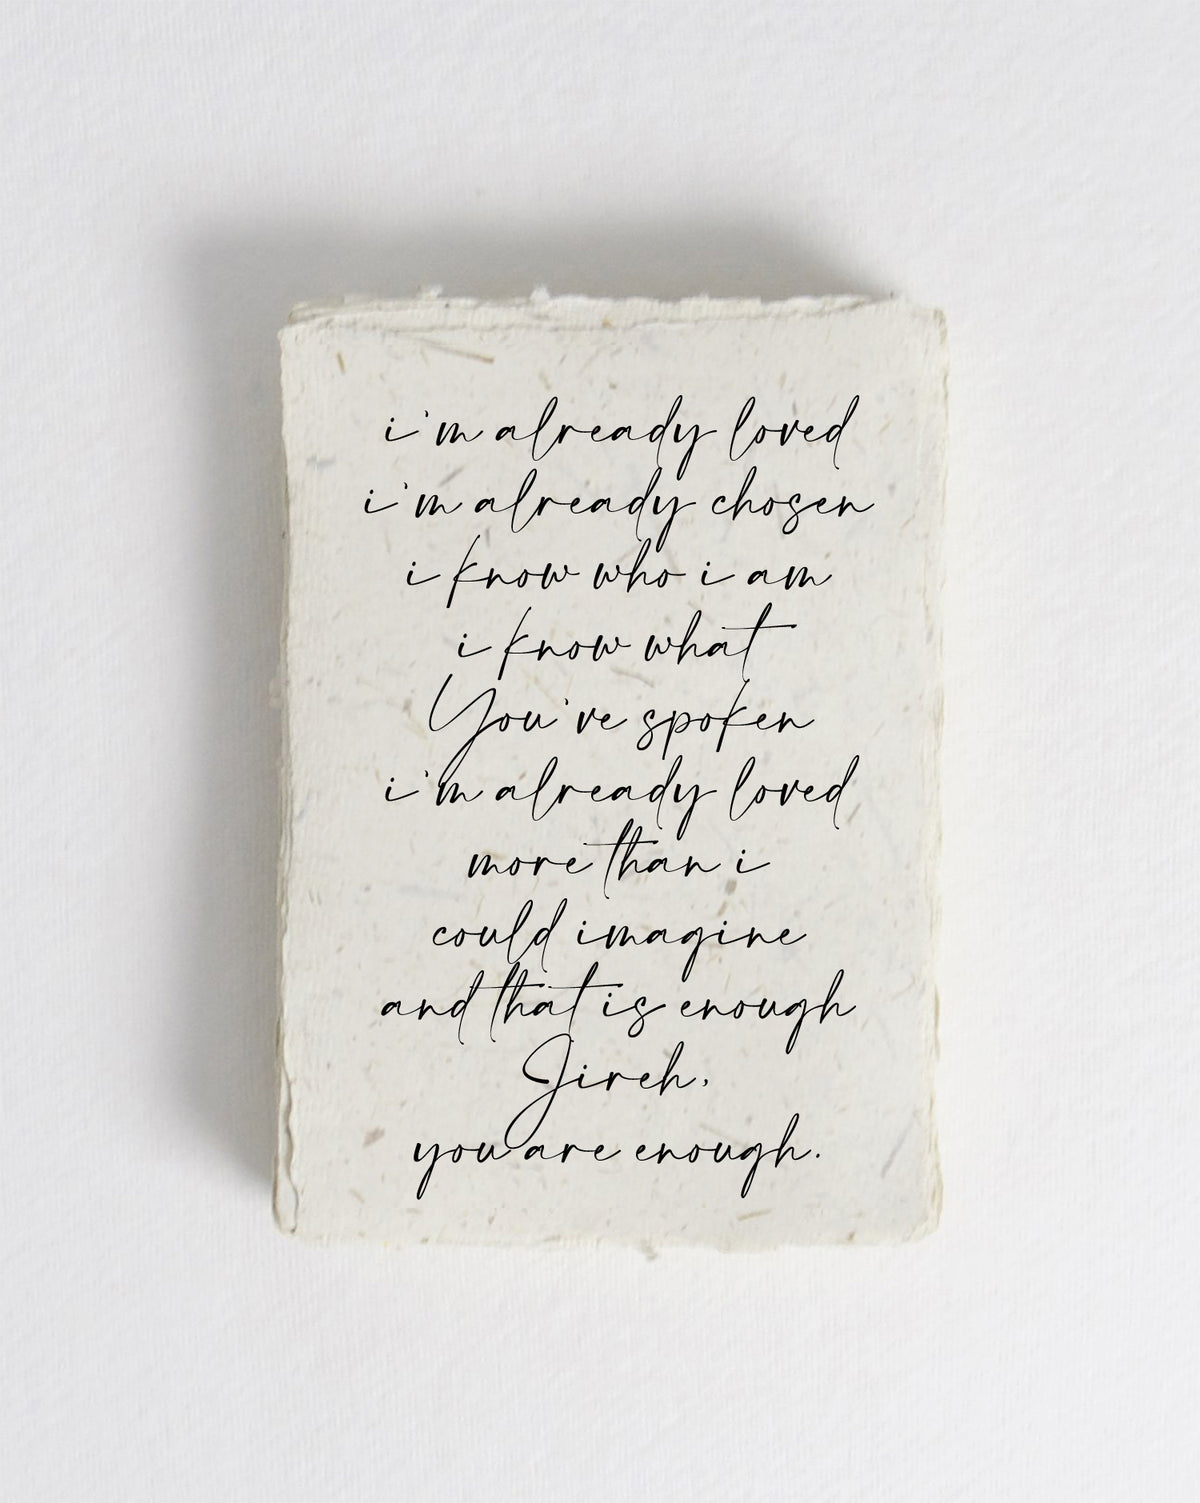 i'm already loved
i'm already chosen
i know who i am
i know what
You've spoken
i'm already loved
more than i
could imagine
and that is enough
Jireh,
you are enough.